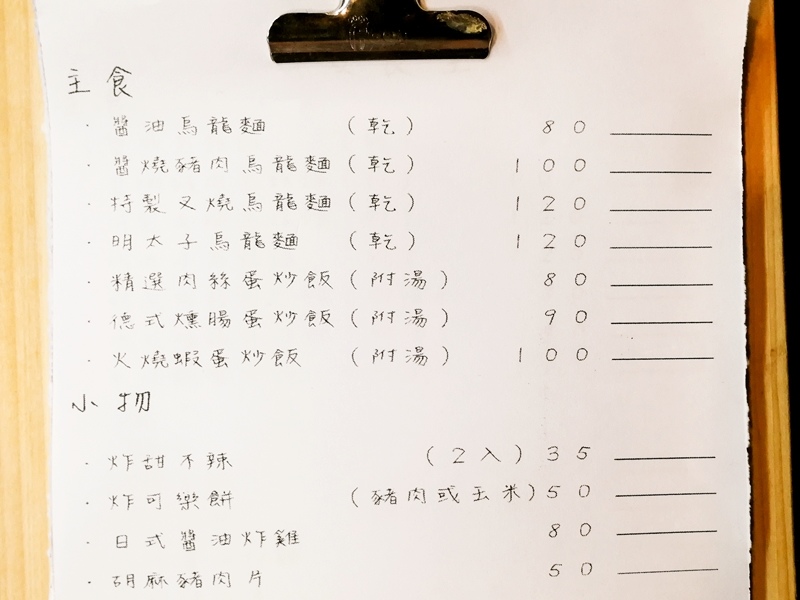 主食
· 醬油烏龍麵 (乾) 80
· 醬燒豬肉烏龍麵 (乾) 100
· 特製叉燒烏龍麵 (乾) 120
· 明太子烏龍麵 (乾) 120
· 精選肉絲蛋炒飯 (附湯) 80
· 德式燻腸蛋炒飯 (附湯) 90
· 火燒蝦蛋炒飯 (附湯) 100
小物
· 炸甜不辣 (2入) 35
· 炸可樂餅 (豬肉或玉米) 50
· 日式醬油炸雞 80
· 胡麻豬肉片 50